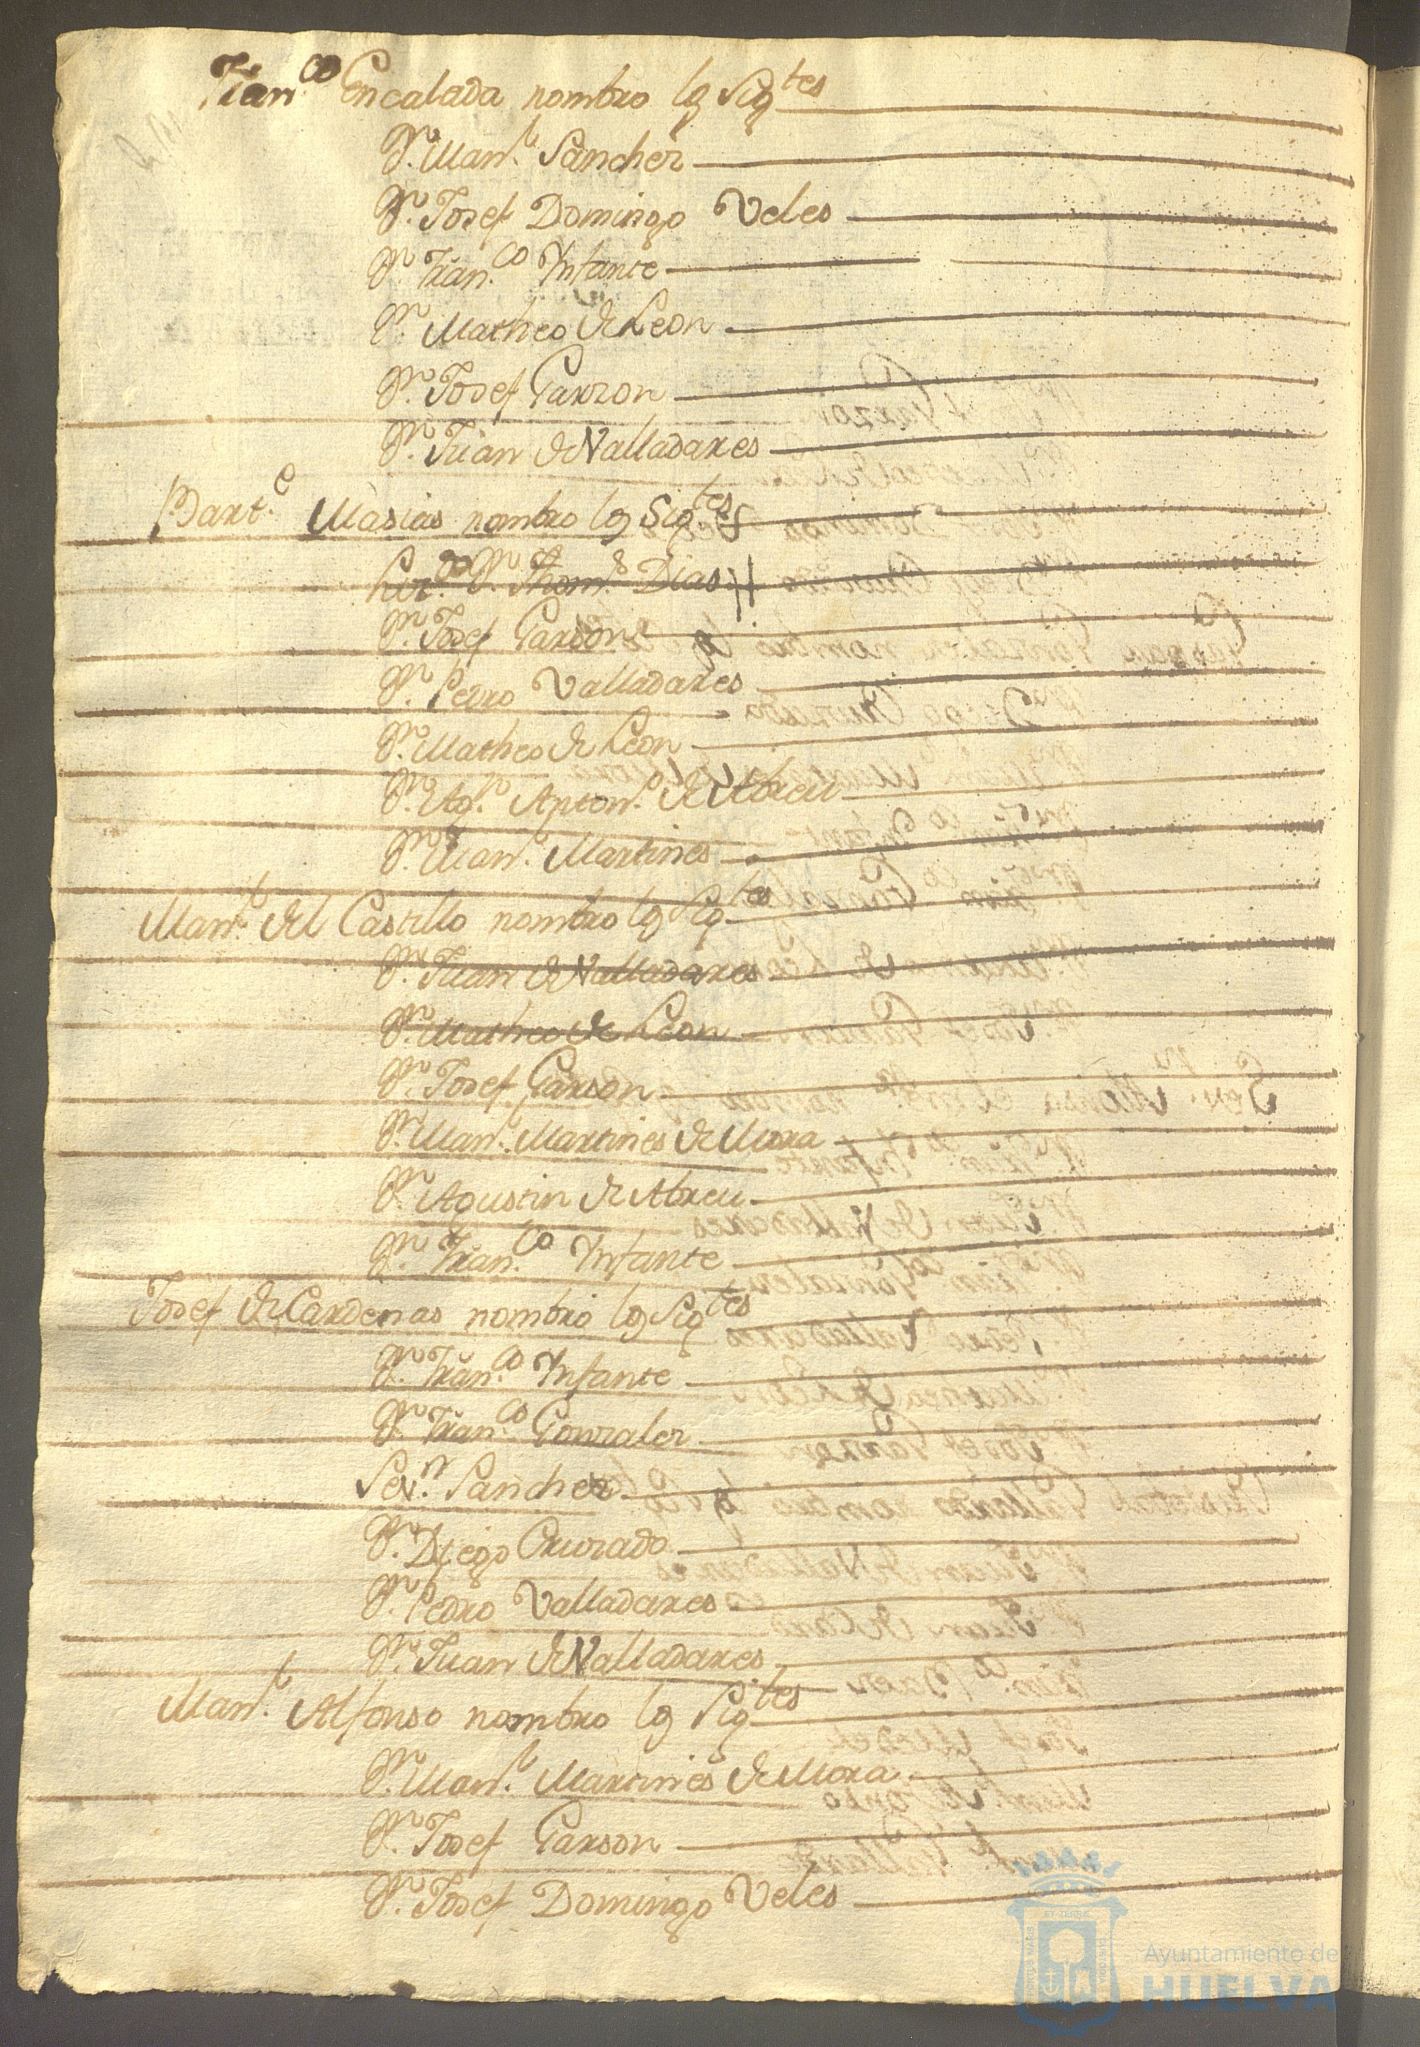 Fran.co Encalada nombro los Sigtes
Dn. Man.l Sanchez
Dn. Josef Domingo Veles
Dn. Fran.co Ynfante
Dn. Matheo de Leon
Dn. Josef Garzon
Dn. Juan de Valladares
Bart.e Masias nombro los Sigtes
Lic.do Dn. Thom.s Dias
Dn. Josef Garson
Dn. Pedro Valladares
Dn. Matheo de Leon
Dn. Ag.n Anton.o de Abreu
Dn. Man.l Martines
Man.l del Castillo nombro los Sigtes
Dn. Juan de Valladares
Dn. Matheo de Leon
Dn. Josef Garson
Dn. Man.l Martines de Mora
Dn. Agustin de Abreu
Dn. Fran.co Ynfante
Josef de Cardenas nombro los Sigtes
Dn. Fran.co Ynfante
Dn. Fran.co Gonzalez
Sev.n Sanchez
Dn. Diego Cruzado
Dn. Pedro Valladares
Dn. Juan de Valladares
Man.l Alfonso nombro los Sigtes
Dn. Man.l Martines de Mora
Dn. Josef Garson
Dn. Josef Domingo Veles
Ayuntamiento de
HUELVA